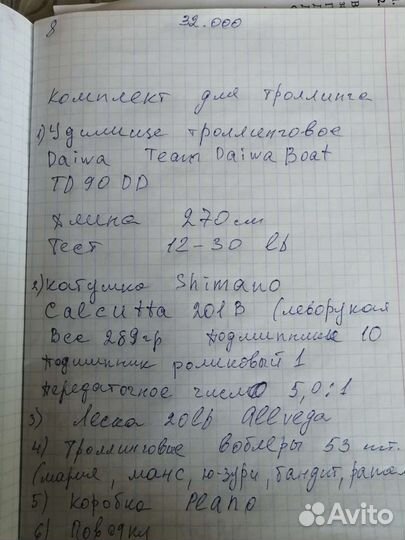 8 32.000
Комплект для троллинга
1) Удилище троллинговое
Daiwa Team Daiwa Boat
TD 90 DD
Длина 270 см
Тест 12-30 lb
2) Катушка Shimano
Calcutta 201B (леворукая
Вес 289гр подшипник 10
подшипник роликовый 1
передаточное число 5,0:1
3) Леска 20lb Allvega
4) Троллинговые воблеры 53 шт.
(мария, манс, ю-зури, бандит, рапал
5) Коробка Plano
6) Поводки
Avito